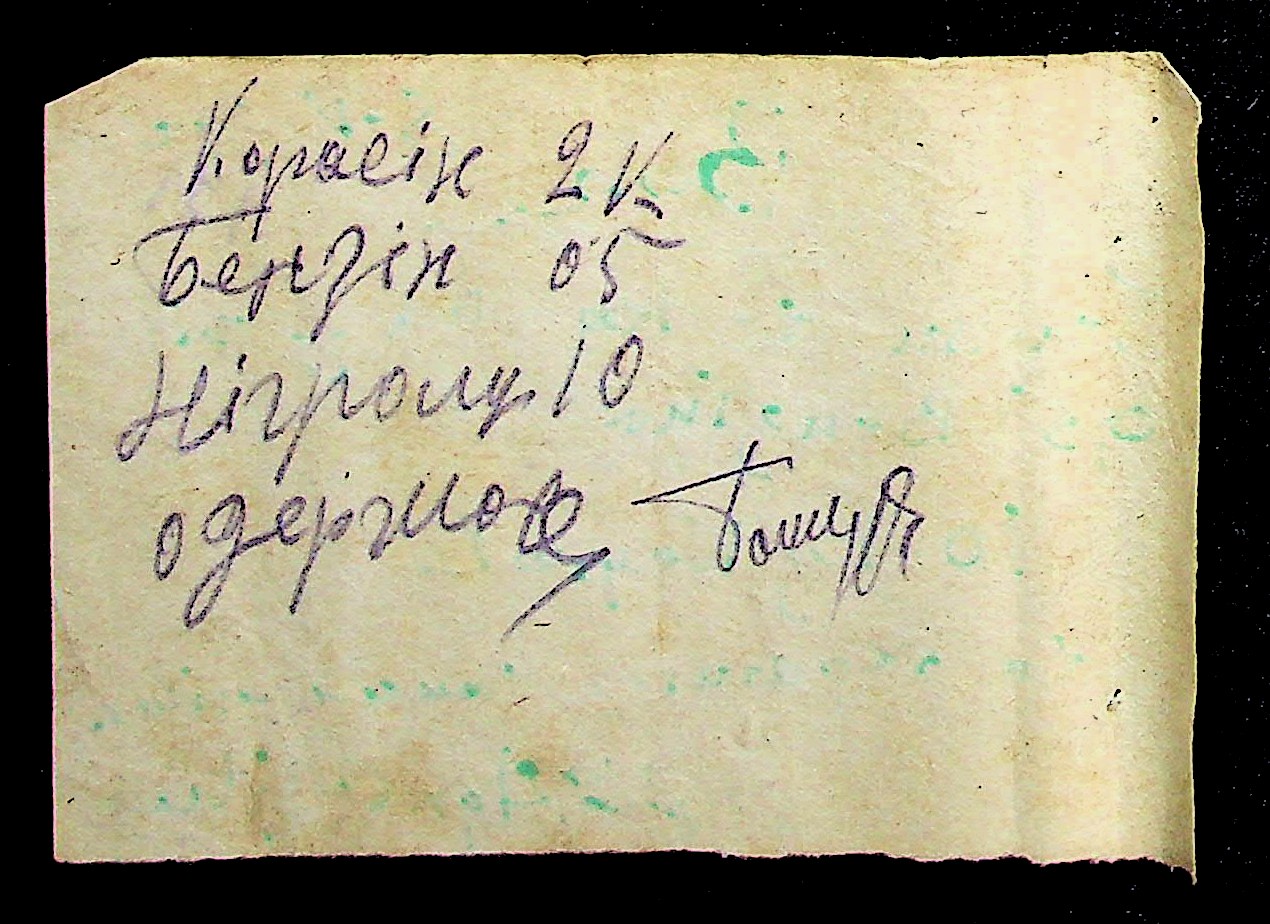 Карасін 2 к
Бензін 05
Нігролу 10
одержав